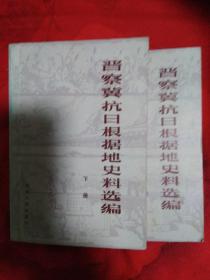 晋察冀抗日根据地史料选编
下册
晋察冀抗日根据地史料选编